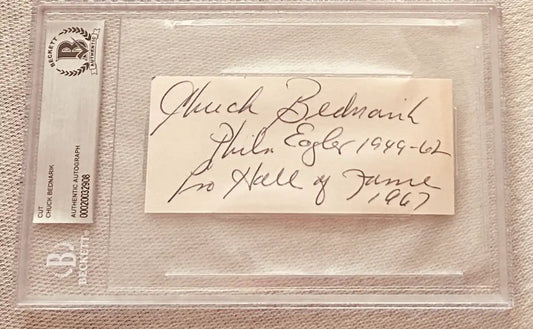 BECKETT
AUTHENTIC
CUT
CHUCK BEDNARIK
AUTHENTIC AUTOGRAPH
00020032908
BECKETT
Chuck Bednarik
Phila Eagles 1949-62
Pro Hall of Fame
1967